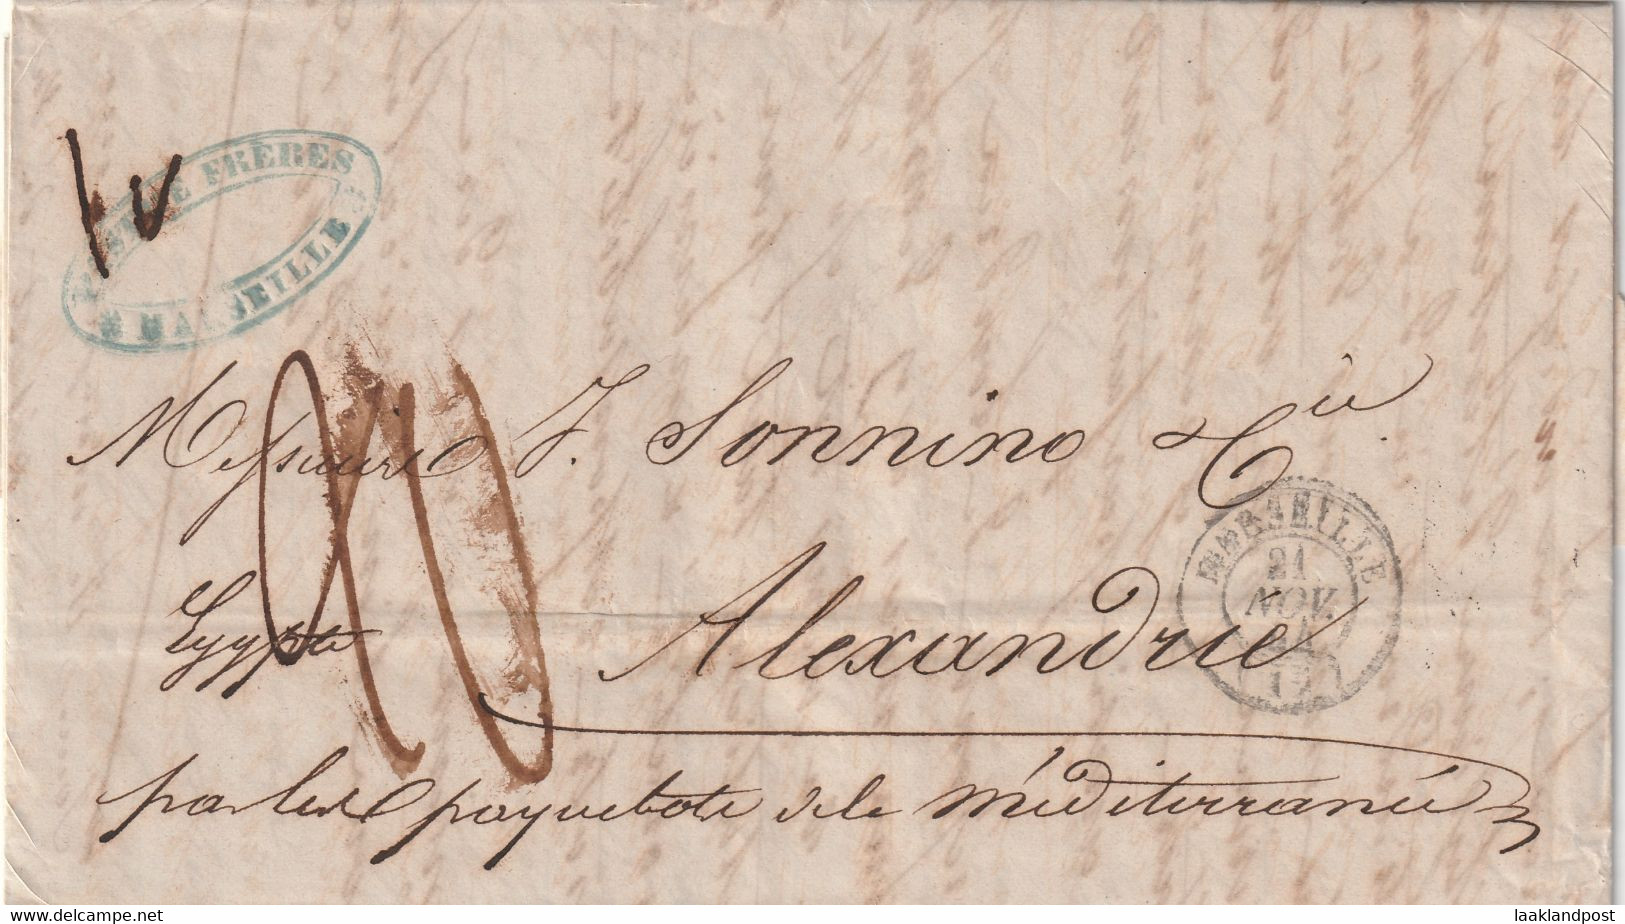 FRÈRES
MARSEILLE
10
Messieurs J. Sonnino & Cie
MARSEILLE
21
NOV.
Egypte
Alexandrie
par les paquebots de la méditerranée
www.delcampe.net
laaklandpost